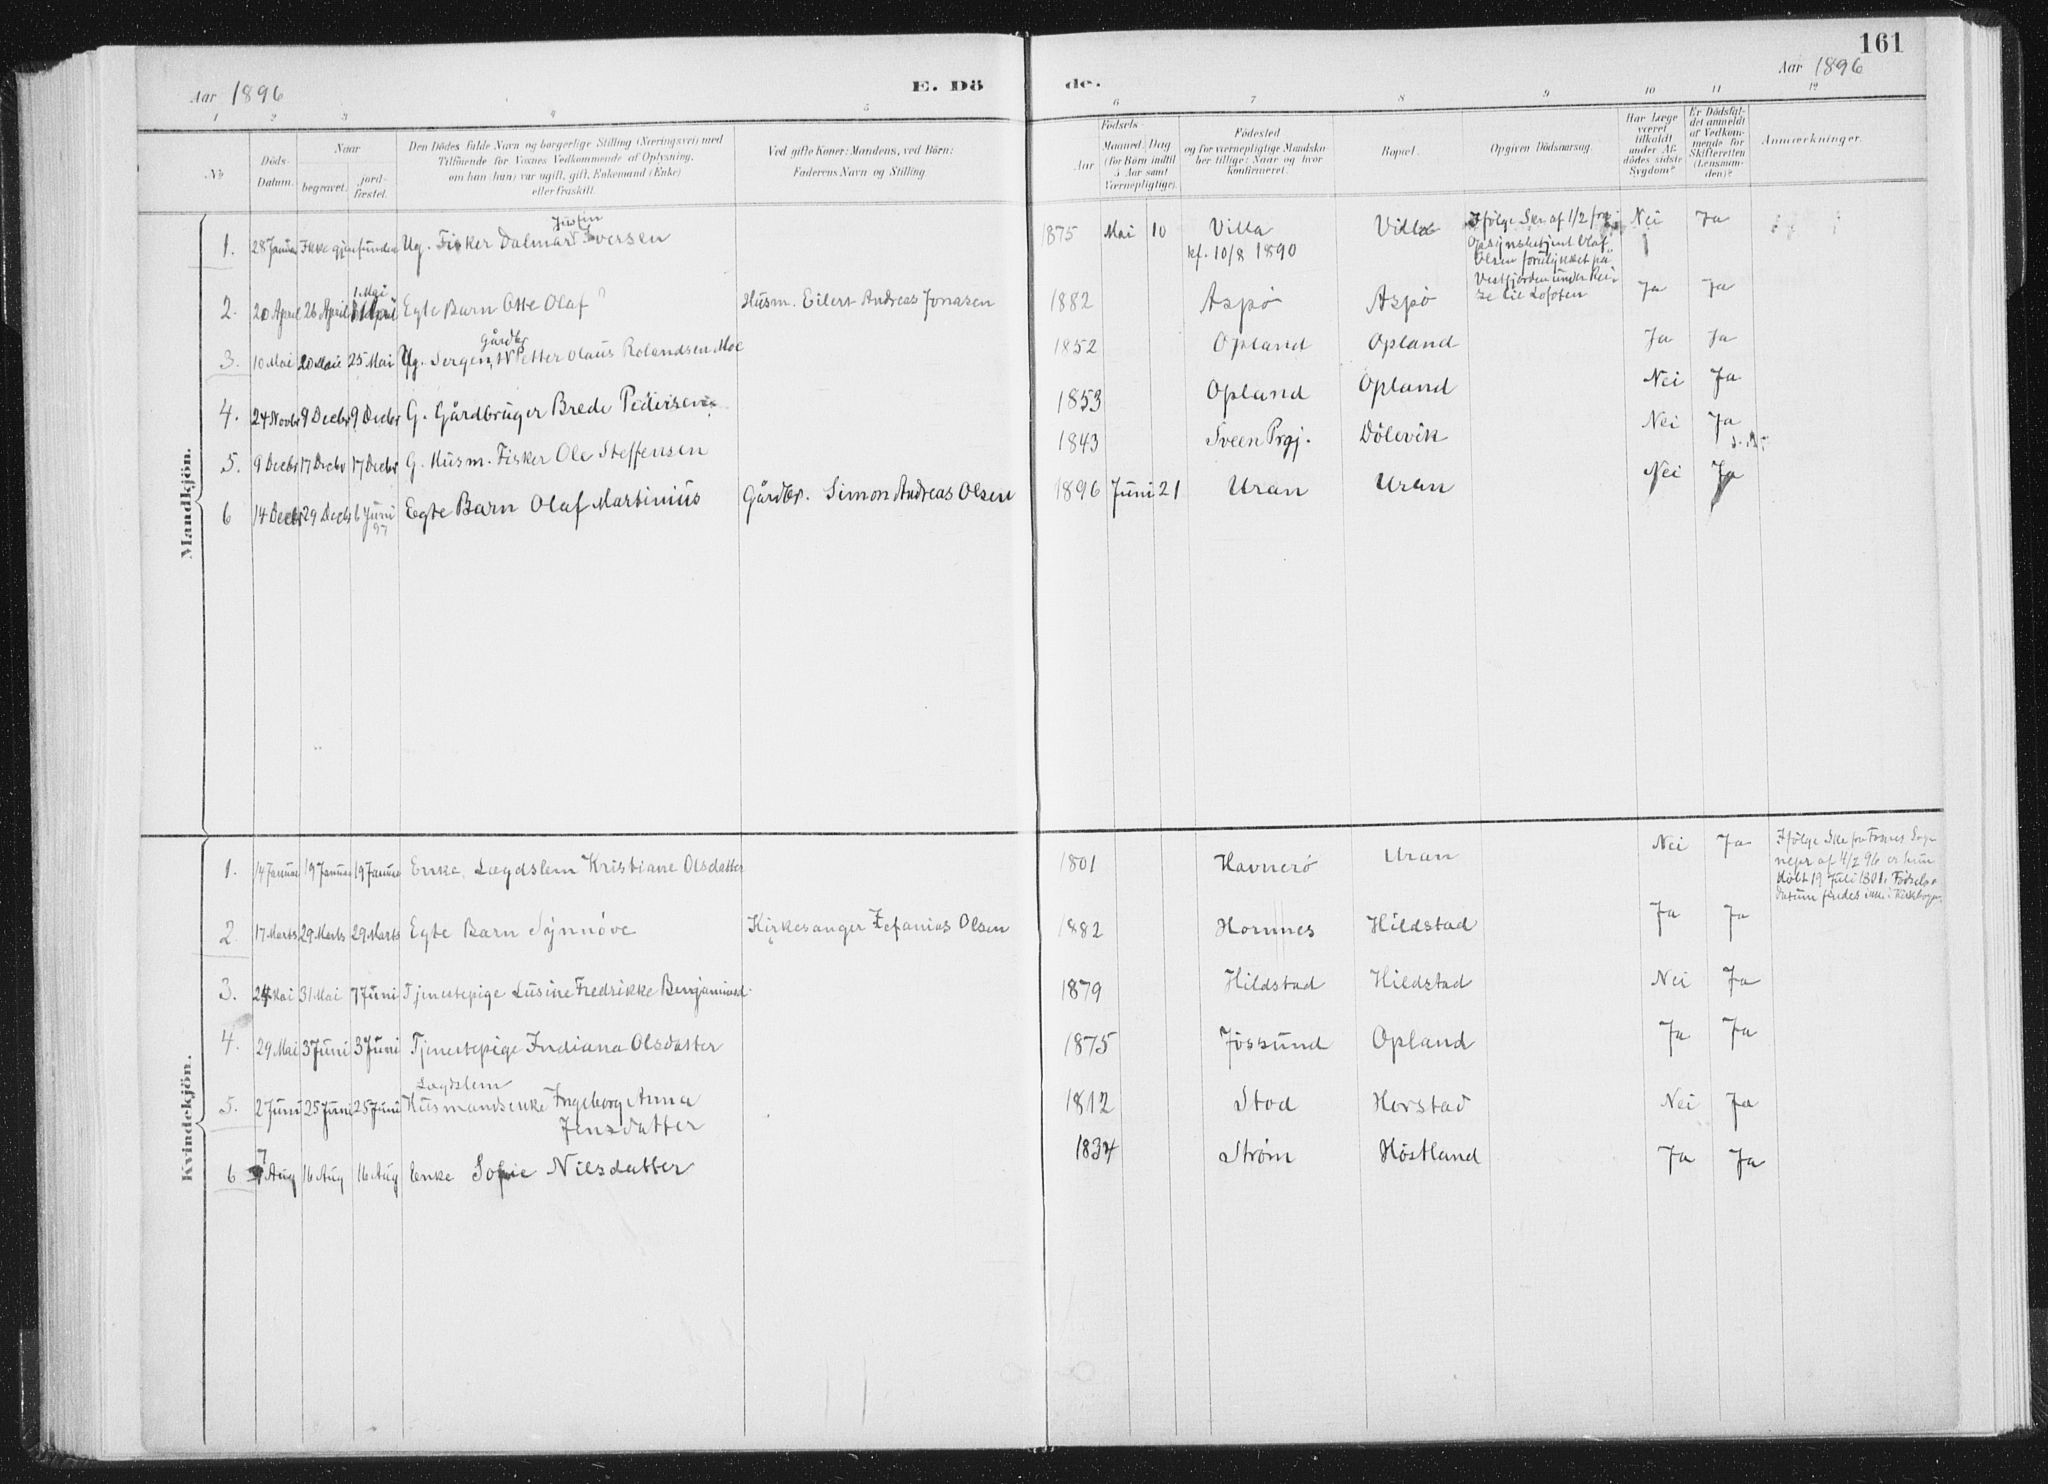 161
Aar 1896
E. Dö
de.
Aar 1896
1 2 3 4 5 6 7 8 9 10 11 12
No
Döds-Datum.
Naar
begravet.
jord-fæstet.
Den Dödes fulde Navn og borgerlige Stilling (Næringsvei) med
Tilföiende for Voxnes Vedkommende af Oplysning,
om han (hun) var ugift, gift, Enkemand (Enke)
eller fraskilt.
Ved gifte Koner: Mandens, ved Börn:
Faderens Navn og Stilling
Födsels-
Aar
Maaned. Dag
(for Börn indtil
5 Aar samt
Værnepligtige).
Födested
og for værnepligtige Mandska-
ber tillige: Naar og hvor
konfirmeret.
Bopæl.
Opgiven Dödsaarsag.
Har Læge
været
tilkaldt
under Af-
dödes sidste
Sygdom?
Er Dödsfal-
det anmeldt
af Vedkom-
mende for
Skifteretten
(Lensman-
den)?
Anmærkninger.
Mandkjön.
Justin
1. 28 Januar Ikke gjenfunden Ug. Fisker Dalmar Iversen 1875 Mai 10 Villa Villa Nei Ja
kf. 10/8 1890
Ifølge Skr af 1/2 fra
Opsynsbetjent Olaf
Olsen forulykket på
Vestfjorden under Rei-
se til Lofoten
1. Mai
2. 20 April 26 April Egte Barn Otto Olaf Husm. Eilert Andreas Jonasen 1882 Aspø Aspø Ja Ja
Gårdbr
3. 10 Mai 20 Mai 25 Mai Ug. Petter Olaus Rolandsen Moe 1852 Opland Opland Ja Ja
4. 24 Novbr 9 Decbr 9 Decbr G. Gårdbruger Brede Pedersen 1853 Opland Opland Nei Ja
5. 9 Decbr 17 Decbr 17 Decbr G. Husm. Fisker Ole Steffensen 1843 Sveen Prgj. Dølevik Nei Ja
6 14 Decbr 29 Decb 6 Juni 97 Egte Barn Olaf Martinius Gårdbr. Simon Andreas Olsen 1896 Juni 21 Uran Uran Nei Ja
Kvindekjön.
1. 14 Januar 19 Januar 19 Januar Enke, Lægdslem Kristiane Olsdatter 1801 Havnerø Uran Nei Ja
Ifølge Skr fra Fosnes Sogn
nepr af 4/2 96 er hun
døbt 19 Juli 1801. Fødsels
datum findes ikke i Kirkebogen
2. 17 Marts 29 Marts 29 Marts Egte Barn Synnøve Kirkesanger Zefanias Olsen 1882 Hornnes Hildstad Ja Ja
3. 24 Mai 31 Mai 7 Juni Tjenestepige Lusine Fredrikke Benjaminsd. 1879 Hildstad Hildstad Nei Ja
4. 29 Mai 3 Juni 3 Juni Tjenestepige Indiana Olsdatter 1875 Jøssund Opland Ja Ja
Lægdslem
5. 2 Juni 25 Juni 25 Juni Husmandsenke Ingeborg Anna 1812 Stod Horstad Nei Ja
Jensdatter
6 7 Aug 16 Aug 16 Aug Enke Sofie Nilsdatter 1834 Strøm Høstland Ja Ja